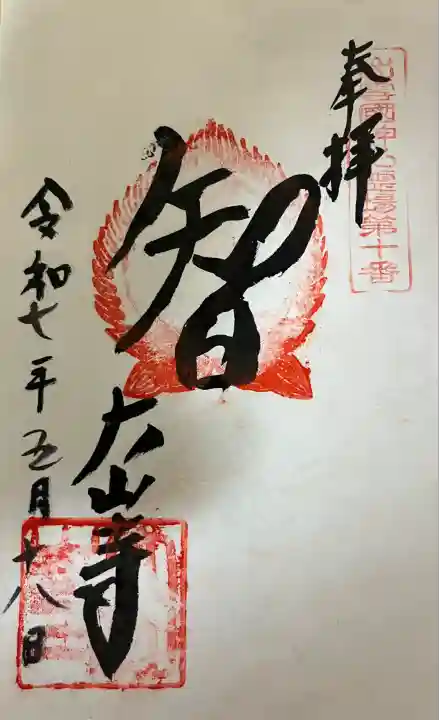 出雲國神仏霊場第十番
奉拝
智
大山寺
令和七年五月十八日